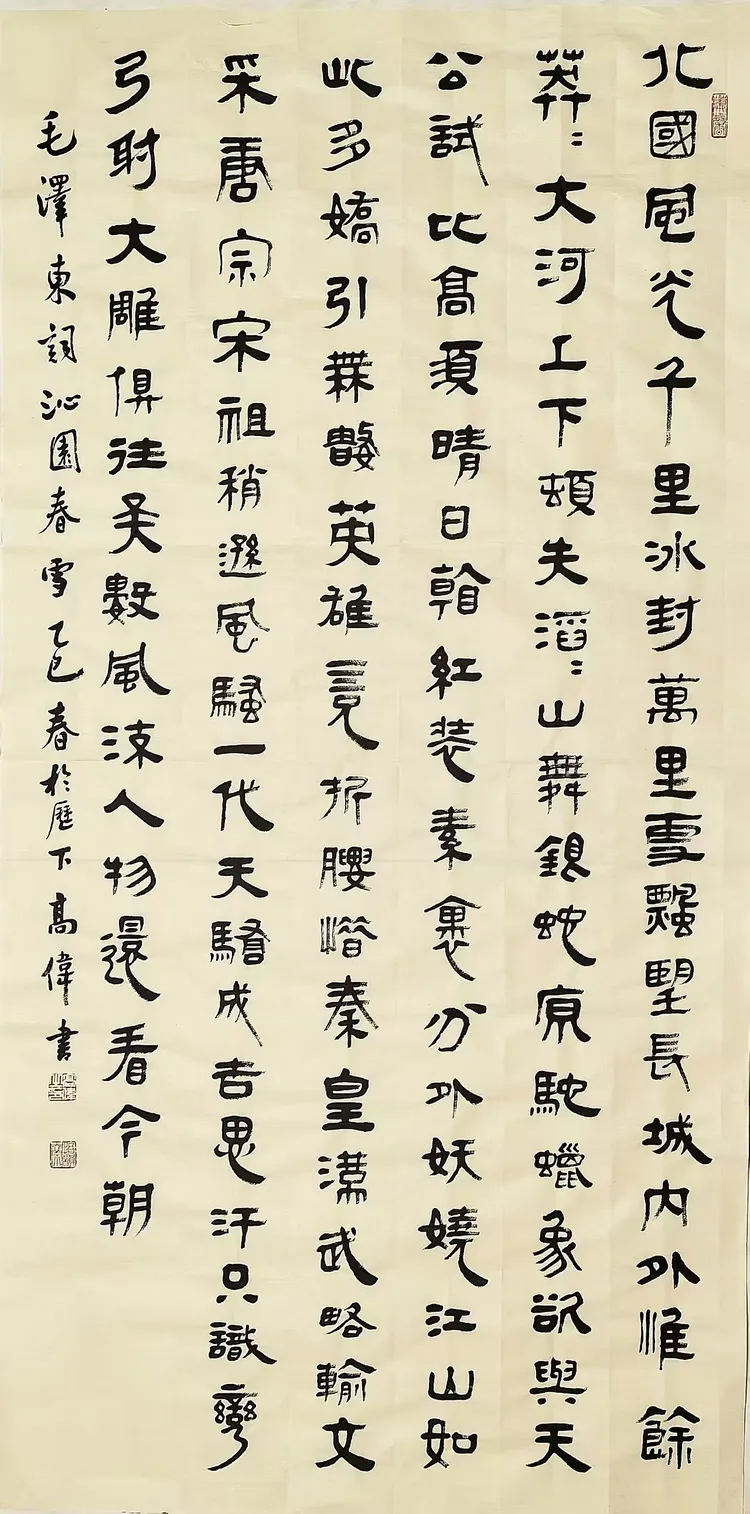 北國風光千里冰封萬里雪飄望長城內外惟餘
莽〻大河上下頓失滔〻山舞銀蛇原馳蠟象欲與天
公試比高須晴日看紅裝素裹分外妖嬈江山如
此多嬌引無數英雄競折腰惜秦皇漢武略輸文
采唐宗宋祖稍遜風騷一代天驕成吉思汗只識彎
弓射大雕俱往矣數風流人物還看今朝
毛澤東詞沁園春雪乙巳春於歷下高偉書